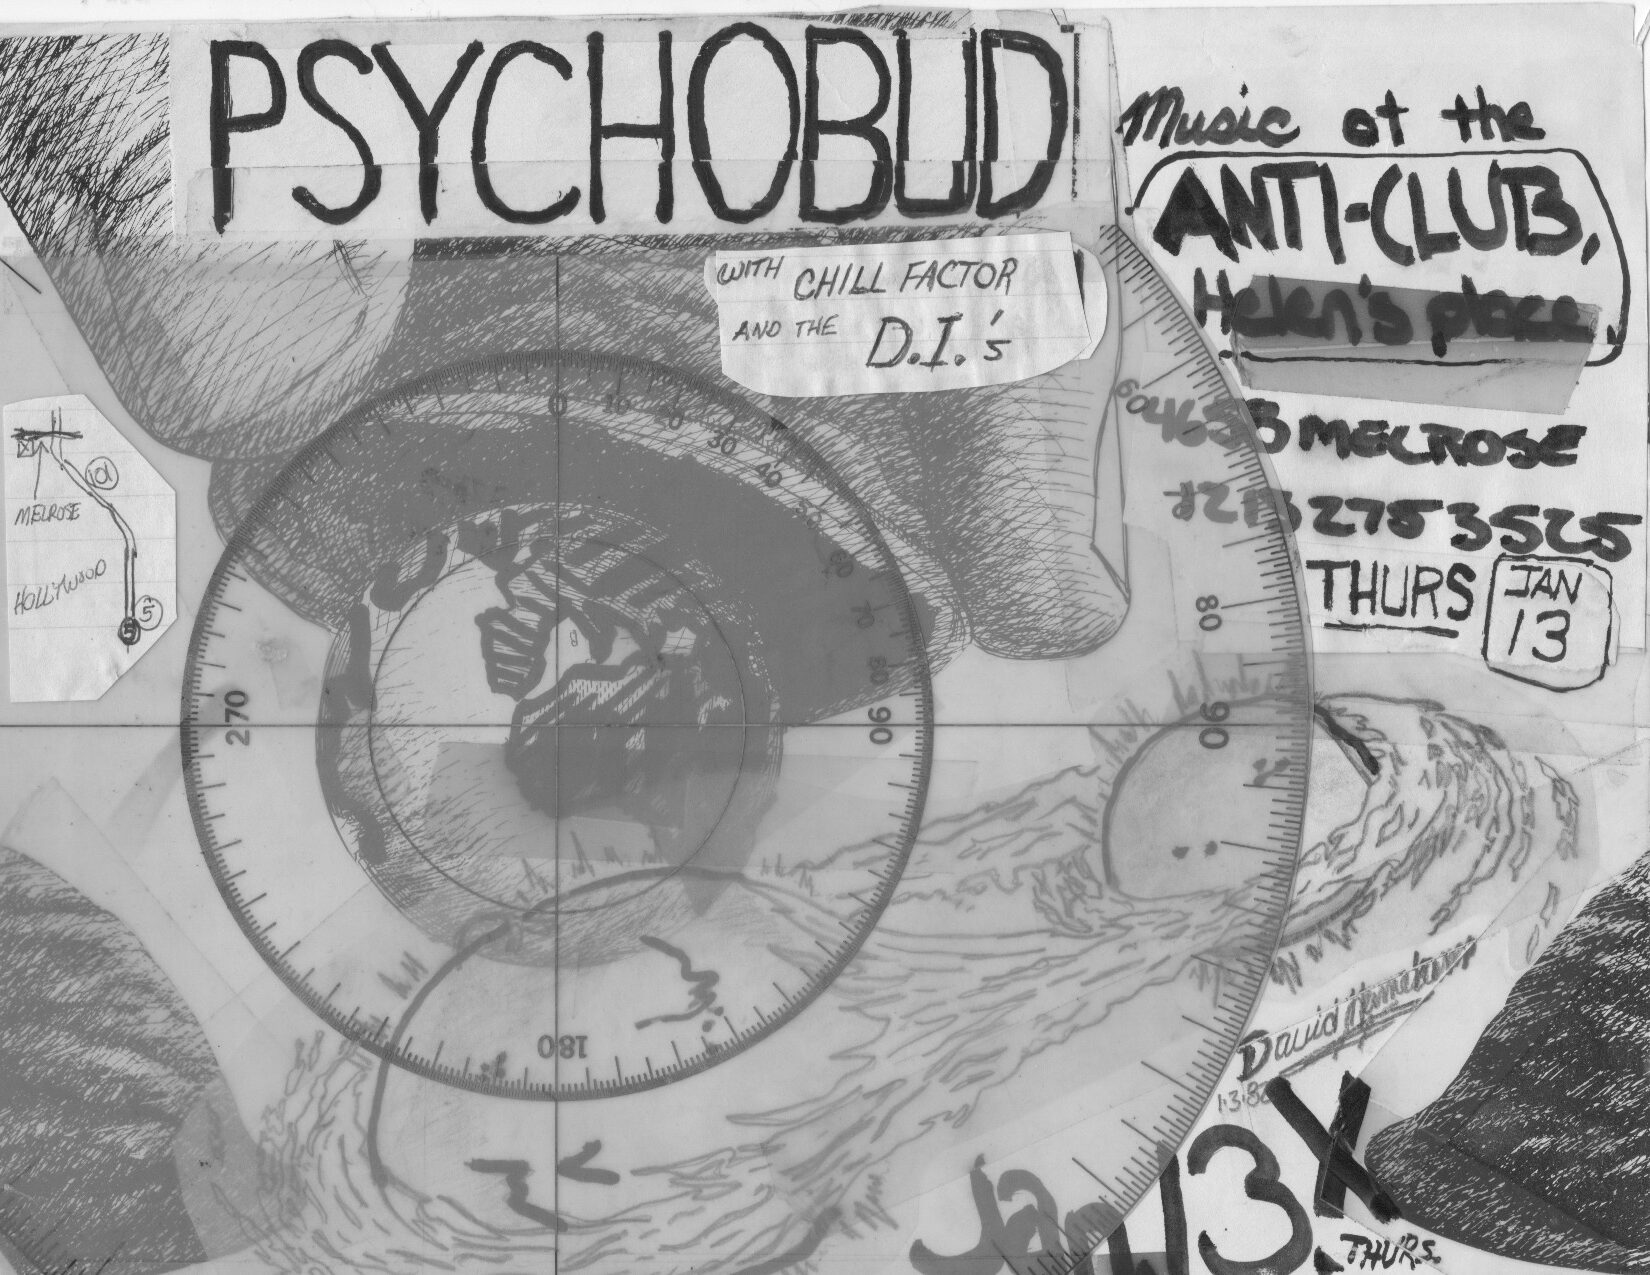 PSYCHOBUD
WITH CHILL FACTOR
AND THE D.I.'s
Music at the
ANTI-CLUB,
Helen's place,
4658 MELROSE
213 275 3525
THURS JAN 13
101
MELROSE
HOLLYWOOD
5
5
0 10 20 30 40 50 60 70 80 90
180
270
60
80
90
David
1·3·82
Jan 13 X
THURS.